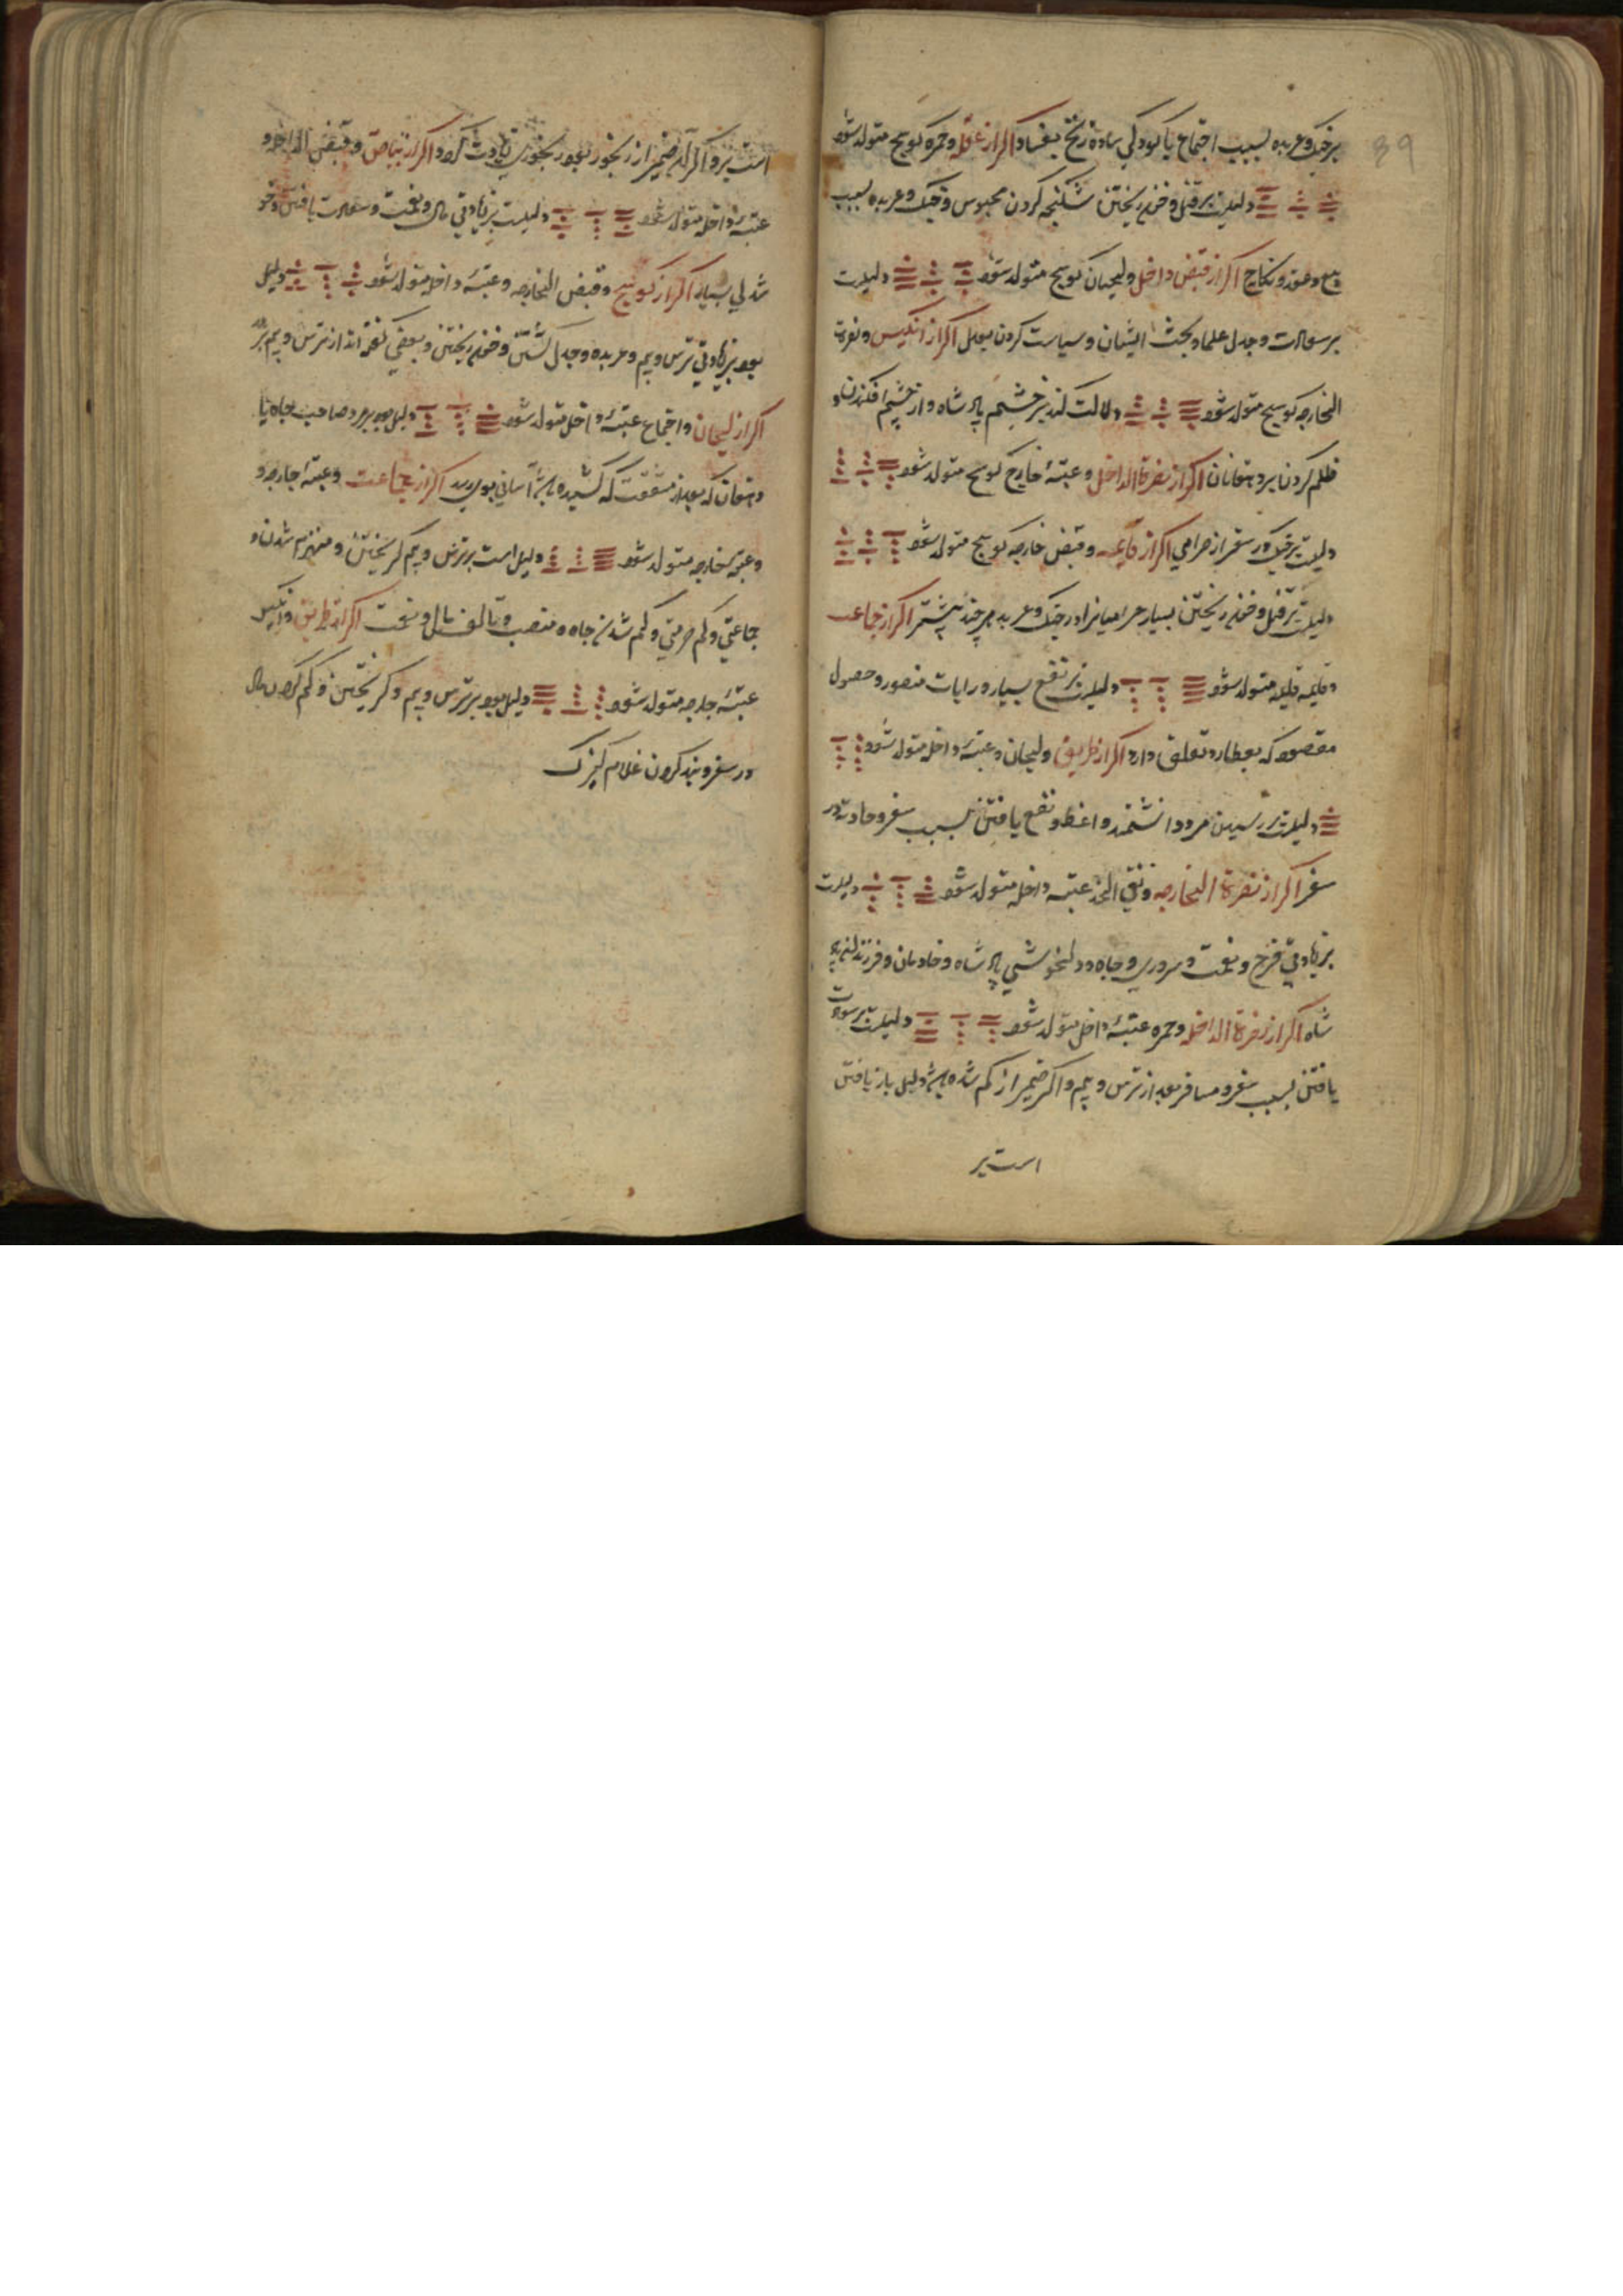 برجنک و عربده بسبب اجتماع با کودکی ساده زنخ بفساد اکر از عقله و حمره کوسج متولد شود
دلیلست بر قتل و خون ریختن شکنجه کردن محبوس و جنک و عربده بسبب
بیع و عقد و نکاح اکر از قبض داخل و لحیان کوسج متولد شود دلیلست
بر سوالات و جدل علما و بحث ایشان و سیاست کردن بعدل اکر از انکیس و نصرت
الخارجه کوسج متولد شود دلالت کند بر خشم پادشاه و از چشم افکندن و
ظلم کردن بر دهقانان اکر از نصرة الداخل و عتبهٔ خارج کوسج متولد شود
دلیلست بر جنک در سفر از حرامی اکر از و قبض خارجه کوسج متولد شود
دلیلست بر قتل و خون ریختن بسیار حرامیانرا در جنک و عربده هر چند بیشتر اکر از جماعت
متولد شود دلیلست بر نفع بسیار و رایات منصور و حصول
مقصود که بعطارد تعلق دارد اکر از طریق و لحیان و عتبهٔ داخل متولد شود
دلیلست بر رسیدن مرد دانشمند و اعظ و نفع یافتن بسبب سفر و حادثه در
سفر اکر از نصرة الخارجه و نقی الخد عتبه داخله متولد شود دلیلست
بزیادتی فرح و نعمت و سروری و جاه و دلخوشی پادشاه و خادمان و فرزند
شاه اکر از نصرة الداخله و حمره عتبهٔ داخل متولد شود دلیلست بر
یافتن بسبب سفر و مسافر بعد از ترس و بیم و اکر ضمیر از کم شده باشد دلیل باز یافتن
است بر
است بر و اکر ضمیر از رنجور بود رنجوری زیادت کردد اکر از بیاض و قبض الداخل و
عتبهٔ داخله متولد شود دلیلست بزیادتی مال و نعمت و سعادت یافتن و خو
شدلی بسیار اکر از کوسج و قبض الخارجه و عتبهٔ داخل متولد شود دلیل
بود بزیادتی ترس و بیم و عربده و جدل کشتن و خون ریختن و بعضی کفته اند از ترس و بیم
اکر از لحیان و اجتماع عتبهٔ داخل متولد شود دلیل بود بر مرد صاحب جاه یا
دهقان که بعد از مشقت که کشیده باشد آسانی بوی رسد اکر از جماعت و عتبهٔ خارجه و
و عتبهٔ خارجه متولد شود دلیل است بر ترس و بیم کریختن و منهزم شدن و
جماعتی و کم حرمتی و کم شدن جاه و منصب و تالف مال و نعمت اکر از طریق و انکیس
عتبهٔ خارجه متولد شود دلیل بود بر ترس و بیم و کریختن و کم کردن مال
در سفر و بند کردن غلام کنیزک